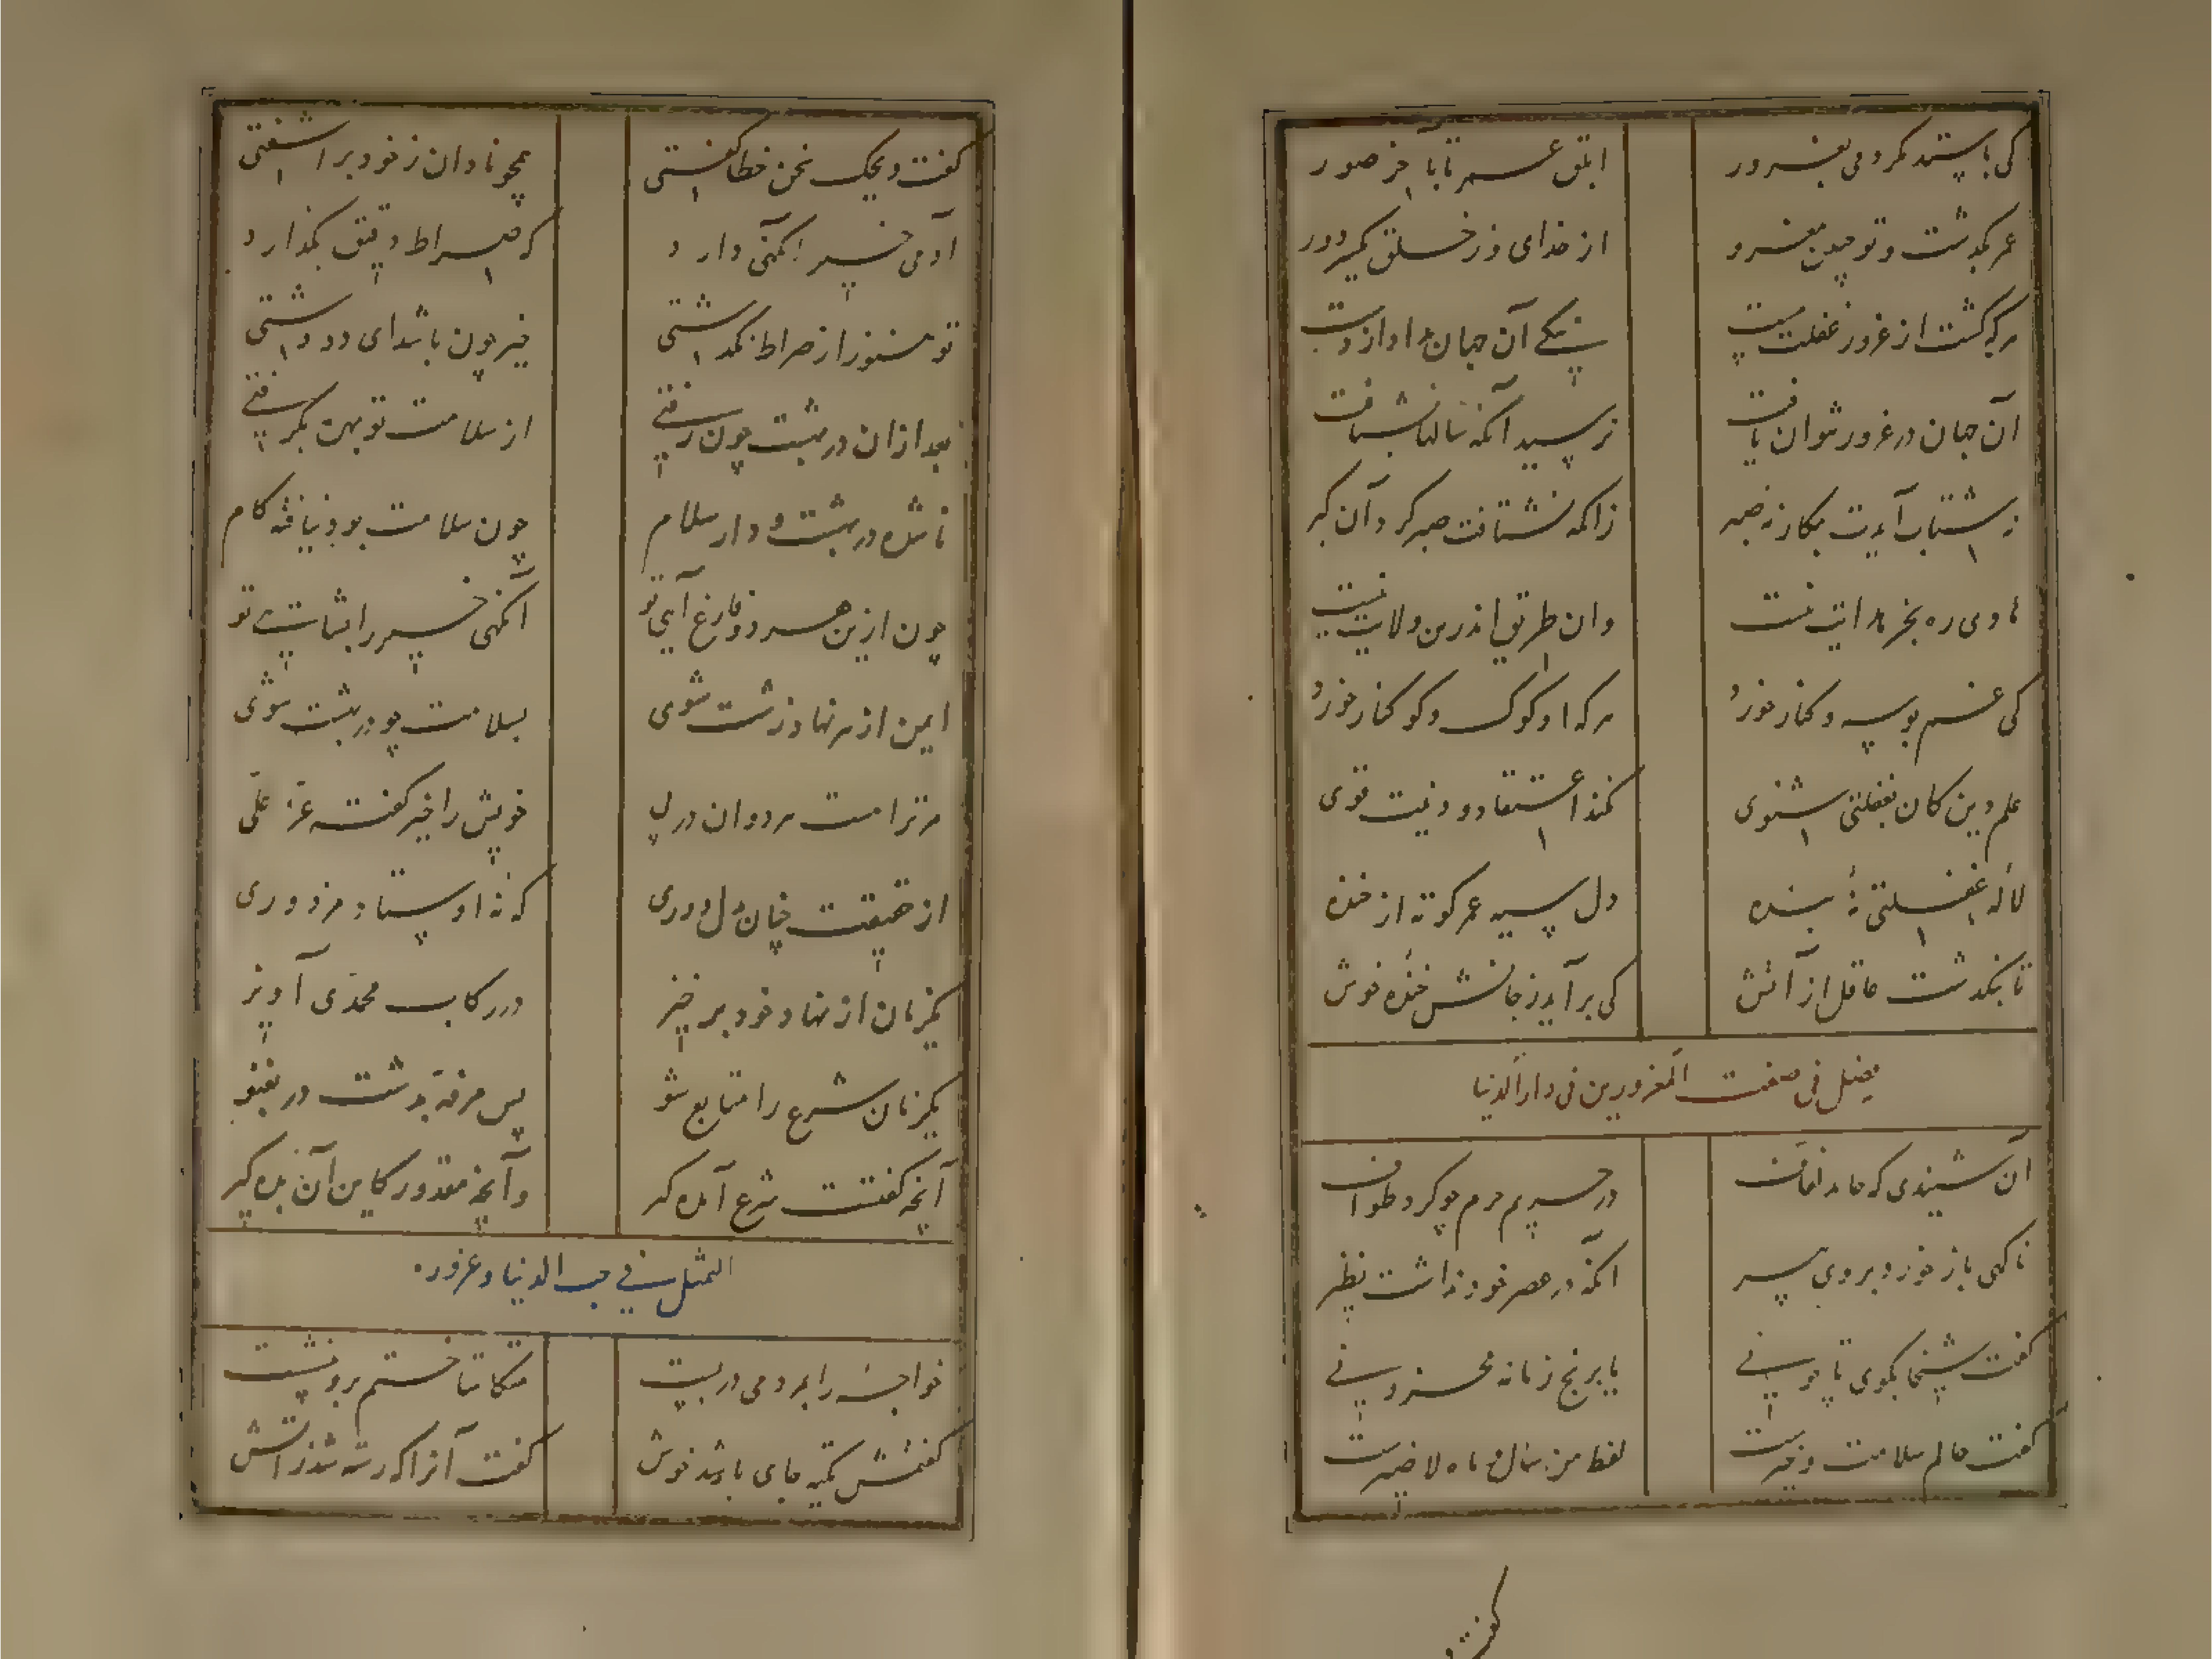 کی باستد مکر دمی بغرور ابلق عمر تا بآخر صور
عمر بگذشت و توچنین مغرور از خدای و ز خلق یکسر دور
هرکه گشت از غرور غفلت مست نیکی آن جهان داد از دست
آن جهان در غرور نتوان یافت نرسید آنکه سالها بشتافت
نه شتاب آیدت بکار نه صبر زانکه نشتافت صبر کرد آن گبر
هادی ره بجز هدایت نیست وان طریق اندرین ولایت نیست
کی غم بوسه و کنار خورد هرکه او کوک و کوکنار خورد
علم دین کان بغفلتی شنوی نکند اعتقاد و دینت قوی
لاله غفلتی نهٔ بنده دل سیه عمر کوته از خنده
تا نگذشت عاقل از آتش کی برآید ز جانش خندهٔ خوش
فصل فی صفت المغرورین فی دار الدنیا
آن شنیدی که حامد لفاف در حریم حرم چو کرد طواف
ناگهی باز خورد بروی پیر آنکه در عصر خود نداشت نظیر
گفت شیخا بگوی تا چونی یا برنج زمانه محزونی
گفت حالم سلامت و خیرست لفظ من سال و ماه لاضیرست
گفت و
گفت ویحک سخن خطا گفتی همچو نادان ز خود برآشفتی
آدمی خیر آنگهی دارد که صراط دقیق بگذارد
تو هنوز از صراط نگذشتی خیر چون باشد ای دو دشتی
بعد ازان در بهشت چون رفتی از سلامت تو بهره بگرفتی
ناشده در بهشت و دار سلام چون سلامت بود نیافته کام
چون ازین هر دو فارغ آیی تو آنگهی خیر را بشایی تو
ایمن از هر نهاد زشت شوی بسلامت چو در بهشت شوی
مر ترا مست مردوان در پی خویش را خیر گفته عز علی
از حقیقت چنان دل دوری که نه اوستاد و مزدوری
یکزمان از نهاد خود برخیز در رکاب محمدی آویز
یکزمان شرع را متابع شو پس مرفه بدشت در بغنو
آنچه گفتت شرع آمده گیر وآنچه مقدور کاین آن بده گیر
التمثل فی حب الدنیا و غروره
خواجهٔ را بمرد می در بست متکا ساختم برو بنشست
گفتمش تکیه جای باشد خوش گفت آنرا که رسته شد ز آتش